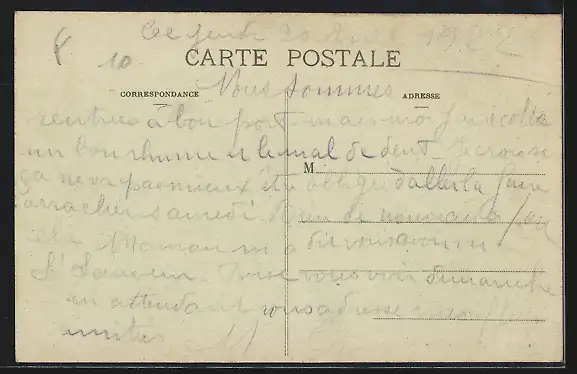 Ce jeudi 20 Avril 1922
10
CARTE POSTALE
Nous sommes
CORRESPONDANCE
ADRESSE
rentrés à bon port mais moi j'ai récolté
un bon rhume et le mal de dent. Je crois si
ça ne va pas mieux être obligé d'aller la faire
M
arracher samedi. Rien de nouveau
Maman m'a dit vous avoir vu
St Sauveur. vous voir dimanche
en attendant vous adresse
amitiés